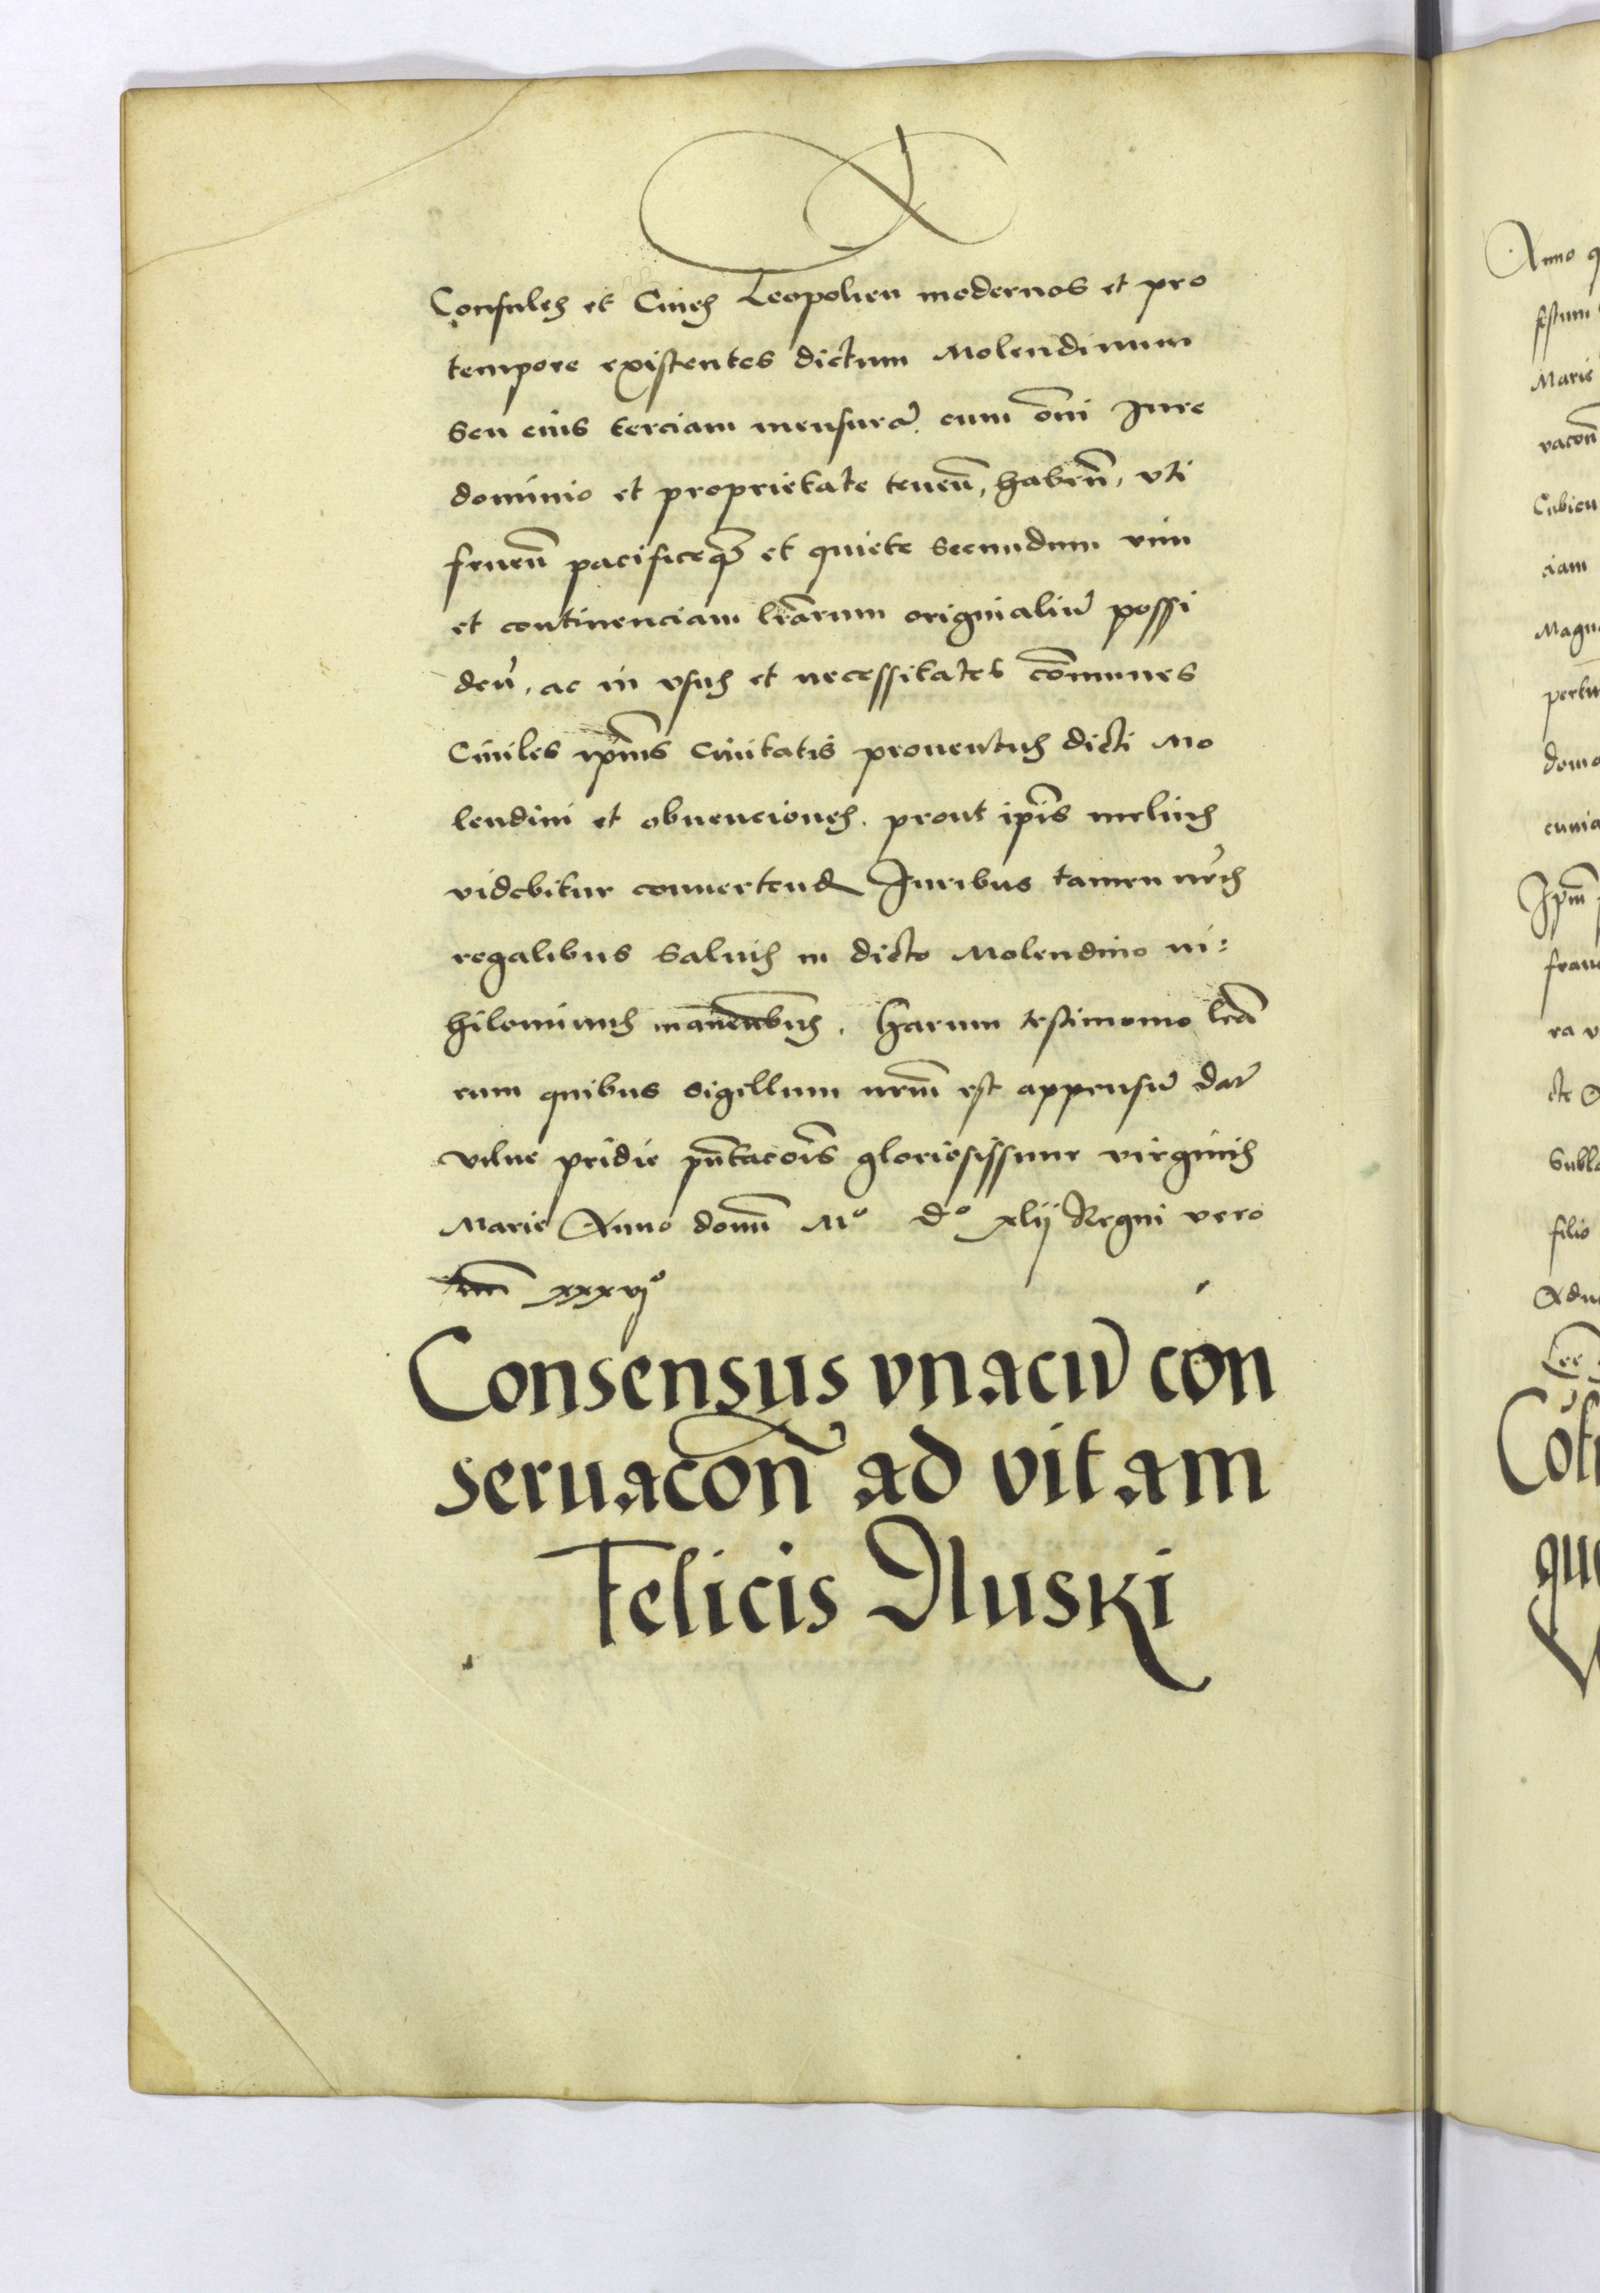 Consules et Cives Leopolien modernos et pro
tempore existentes dictum Molendinum
seu eius terciam mensurā cum om̄i Jure
dominio et proprietate teneñ, habeñ, vti
frueñ pacificeqȝ et quiete secundum vim
et continenciam lr̄arum originaliū possi
deñ, ac in vsus et necessitates cōmunes
Ciuiles ip̄ius Ciuitatis prouentus dicti Mo
lendini et obuenciones prout ip̄is melius
videbitur conuertend Juribus tamen nr̄is
regalibus saluis in dicto Molendino ni:
hilominus manentibus. Harum testimonio lr̄a
rum quibus sigillum nr̄m est appensū dat̄
vilne pridie pn̄tacōis gloriosissime virginis
Marie Anno domi M° d° xlij Regni vero
nr̄i xxxvj°
Consensus vnacū con
seruacōn̄ ad vitam
Felicis Dluski
Anno
festum
Marie
vacon̄
Cubicu
ciam
Magn
domo
cunia
Ip̄m
ra v
Subl
filio